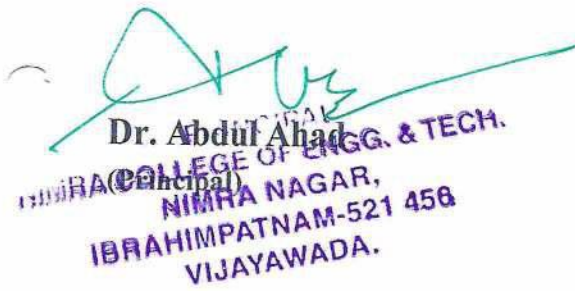 Dr. Abdul Ahad
(Principal)
PRINCIPAL
NIMRA COLLEGE OF ENGG. & TECH.
NIMRA NAGAR,
IBRAHIMPATNAM-521 456
VIJAYAWADA.